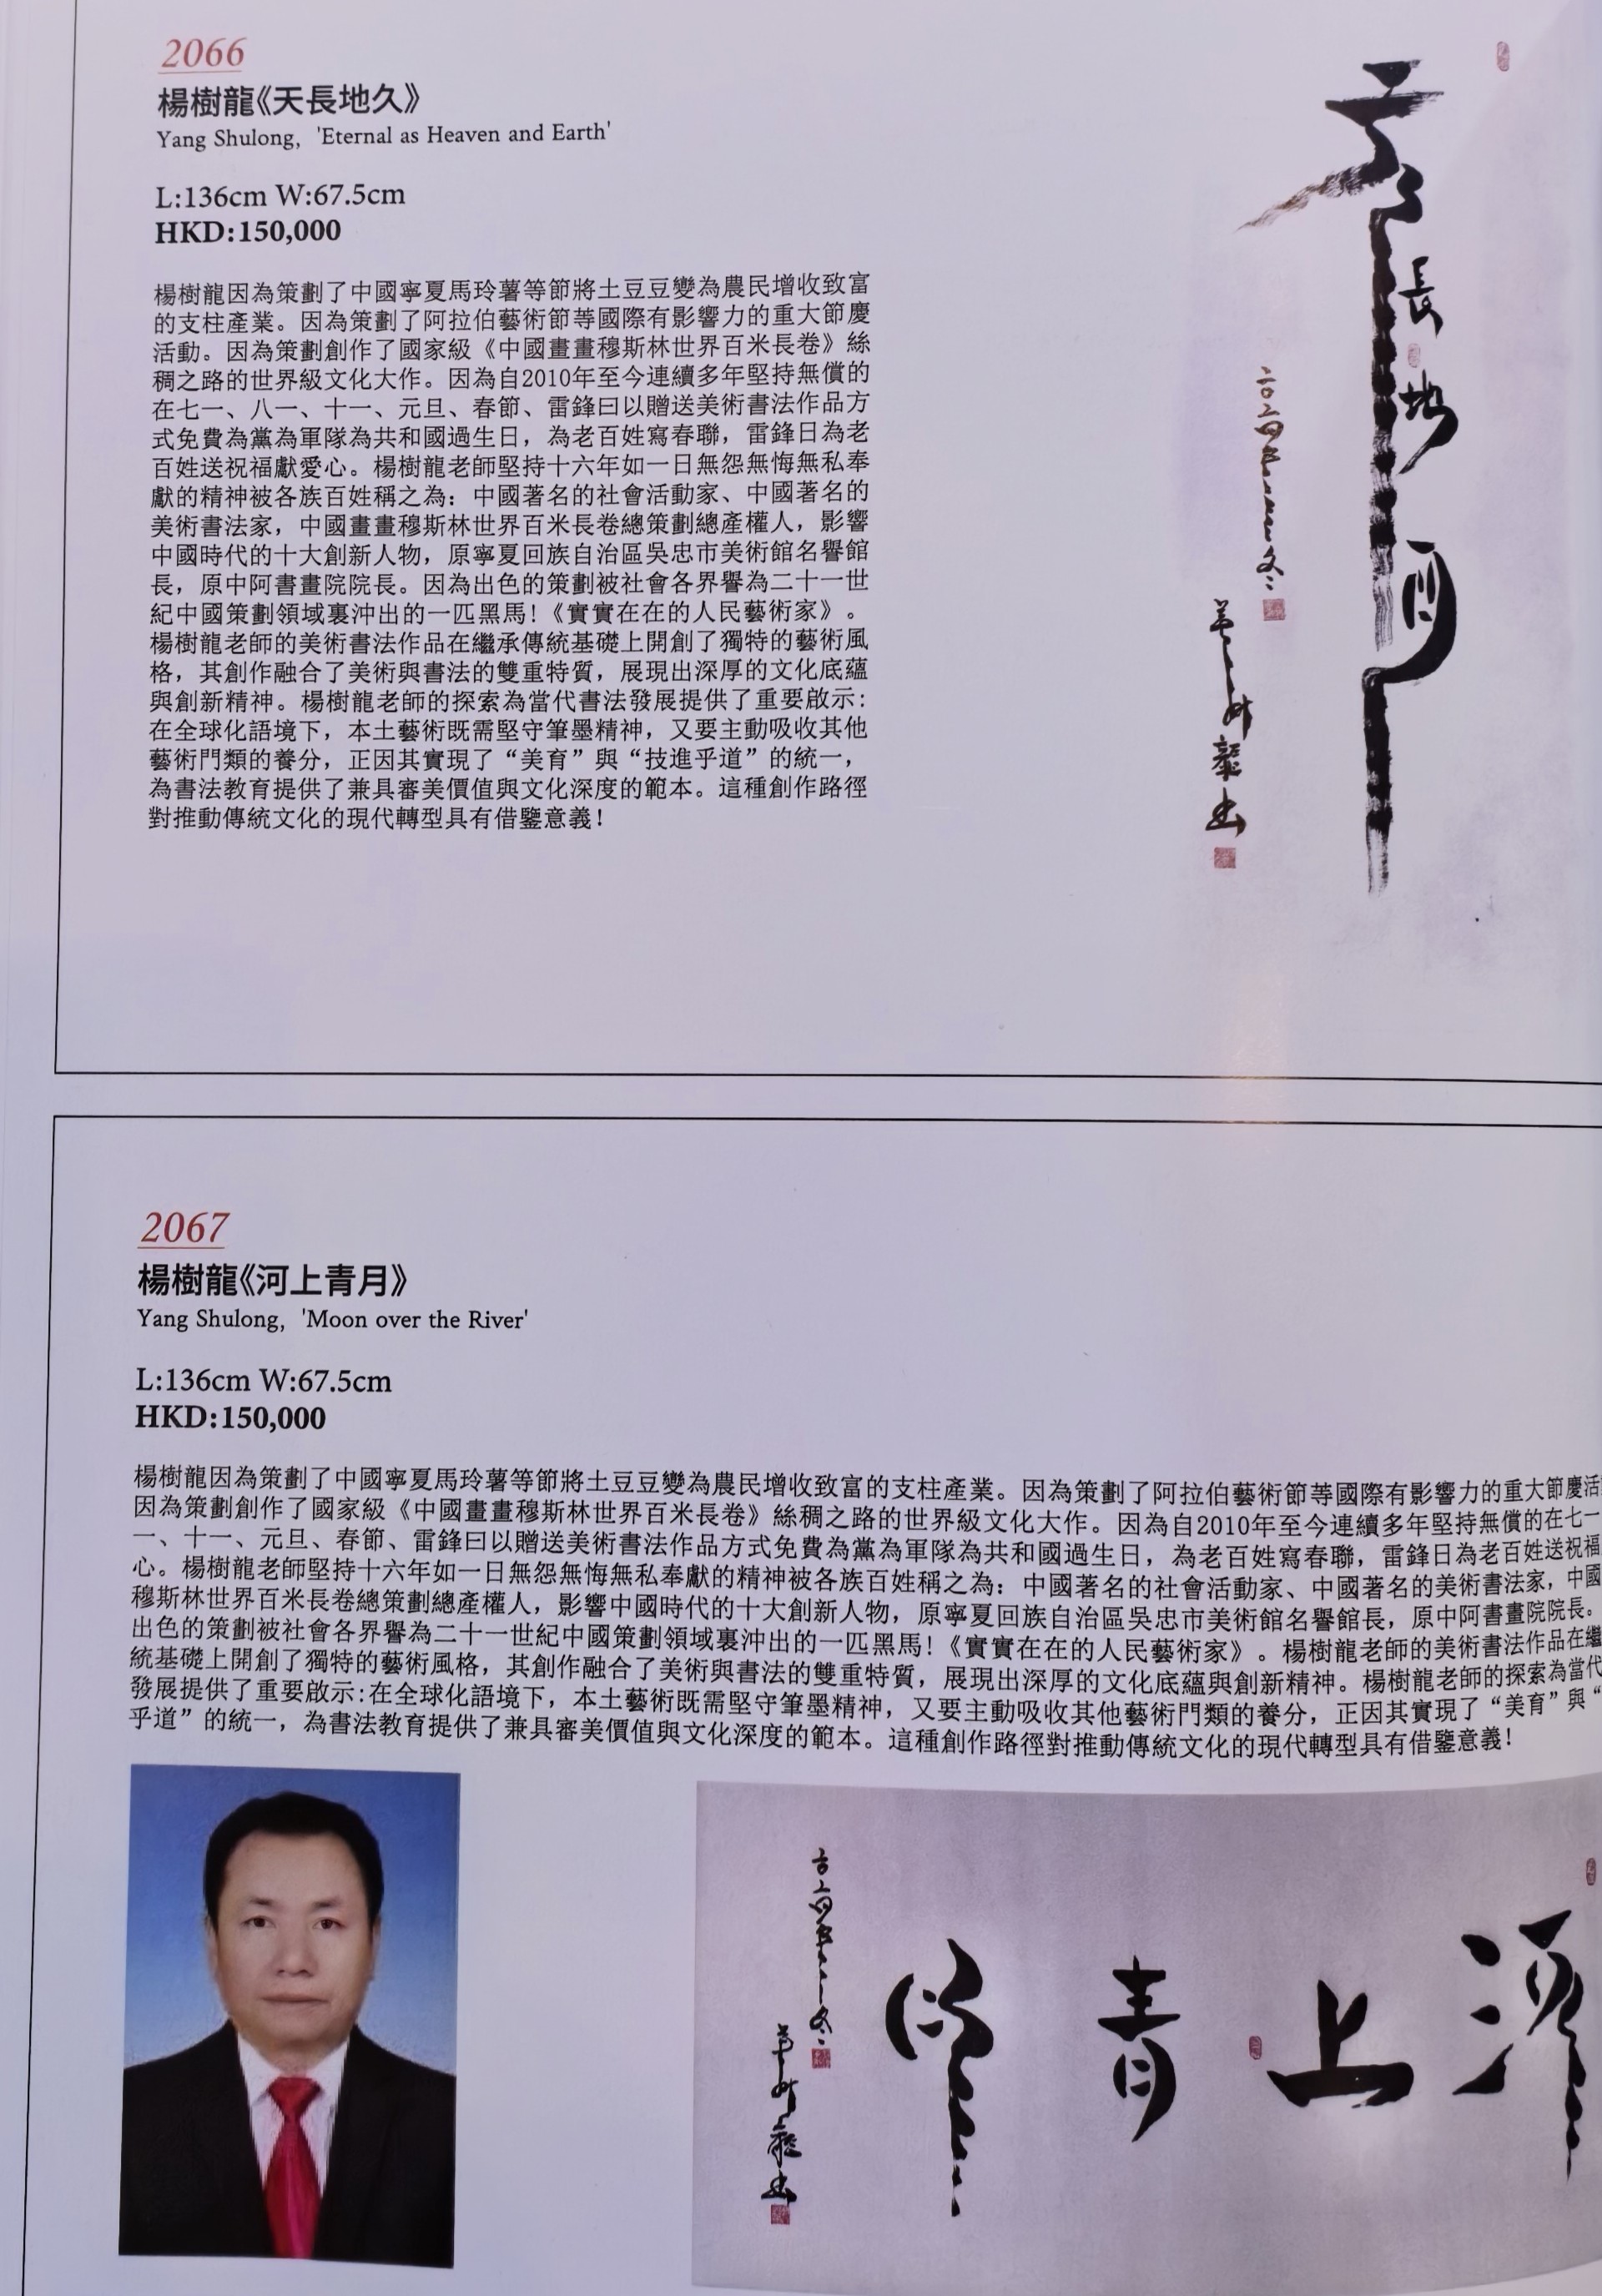 2066
楊樹龍《天長地久》
Yang Shulong, 'Eternal as Heaven and Earth'
L:136cm W:67.5cm
HKD:150,000
楊樹龍因為策劃了中國寧夏馬玲薯等節將土豆豆變為農民增收致富
的支柱產業。因為策劃了阿拉伯藝術節等國際有影響力的重大節慶
活動。因為策劃創作了國家級《中國畫畫穆斯林世界百米長卷》絲
稠之路的世界級文化大作。因為自2010年至今連續多年堅持無償的
在七一、八一、十一、元旦、春節、雷鋒曰以贈送美術書法作品方
式免費為黨為軍隊為共和國過生日，為老百姓寫春聯，雷鋒日為老
百姓送祝福獻愛心。楊樹龍老師堅持十六年如一日無怨無悔無私奉
獻的精神被各族百姓稱之為：中國著名的社會活動家、中國著名的
美術書法家，中國畫畫穆斯林世界百米長卷總策劃總產權人，影響
中國時代的十大創新人物，原寧夏回族自治區吳忠市美術館名譽館
長，原中阿書畫院院長。因為出色的策劃被社會各界譽為二十一世
紀中國策劃領域裏沖出的一匹黑馬!《實實在在的人民藝術家》。
楊樹龍老師的美術書法作品在繼承傳統基礎上開創了獨特的藝術風
格，其創作融合了美術與書法的雙重特質，展現出深厚的文化底蘊
與創新精神。楊樹龍老師的探索為當代書法發展提供了重要啟示:
在全球化語境下，本土藝術既需堅守筆墨精神，又要主動吸收其他
藝術門類的養分，正因其實現了“美育”與“技進乎道”的統一，
為書法教育提供了兼具審美價值與文化深度的範本。這種創作路徑
對推動傳統文化的現代轉型具有借鑒意義!
天
長
地
久
二〇二四年冬
楊樹龍書
2067
楊樹龍《河上青月》
Yang Shulong, 'Moon over the River'
L:136cm W:67.5cm
HKD:150,000
楊樹龍因為策劃了中國寧夏馬玲薯等節將土豆豆變為農民增收致富的支柱產業。因為策劃了阿拉伯藝術節等國際有影響力的重大節慶活
因為策劃創作了國家級《中國畫畫穆斯林世界百米長卷》絲稠之路的世界級文化大作。因為自2010年至今連續多年堅持無償的在七一
一、十一、元旦、春節、雷鋒曰以贈送美術書法作品方式免費為黨為軍隊為共和國過生日，為老百姓寫春聯，雷鋒日為老百姓送祝福
心。楊樹龍老師堅持十六年如一日無怨無悔無私奉獻的精神被各族百姓稱之為：中國著名的社會活動家、中國著名的美術書法家，中國
穆斯林世界百米長卷總策劃總產權人，影響中國時代的十大創新人物，原寧夏回族自治區吳忠市美術館名譽館長，原中阿書畫院院長。
出色的策劃被社會各界譽為二十一世紀中國策劃領域裏沖出的一匹黑馬!《實實在在的人民藝術家》。楊樹龍老師的美術書法作品在繼
統基礎上開創了獨特的藝術風格，其創作融合了美術與書法的雙重特質，展現出深厚的文化底蘊與創新精神。楊樹龍老師的探索為當代
發展提供了重要啟示:在全球化語境下，本土藝術既需堅守筆墨精神，又要主動吸收其他藝術門類的養分，正因其實現了“美育”與“
乎道”的統一，為書法教育提供了兼具審美價值與文化深度的範本。這種創作路徑對推動傳統文化的現代轉型具有借鑒意義!
河上青月
二〇二四年冬
楊樹龍書